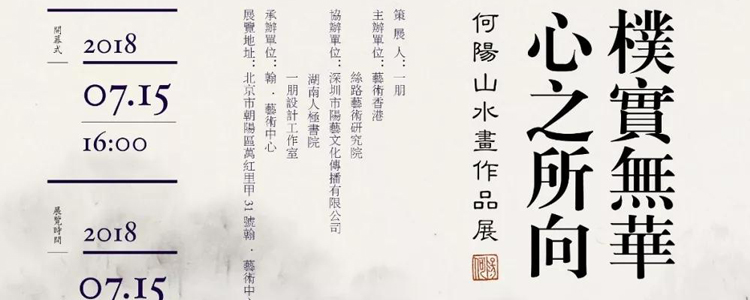 樸實無華
心之所向
何陽山水畫作品展
策展人：一朋
主辦單位：藝術香港
絲路藝術研究院
協辦單位：深圳市陽藝文化傳播有限公司
湖南人極書院
一朋設計工作室
承辦單位：翰．藝術中心
展覽地址：北京市朝陽區萬紅里甲31號翰．藝術中
開幕式
2018
07.15
16:00
展覽時間
2018
07.15